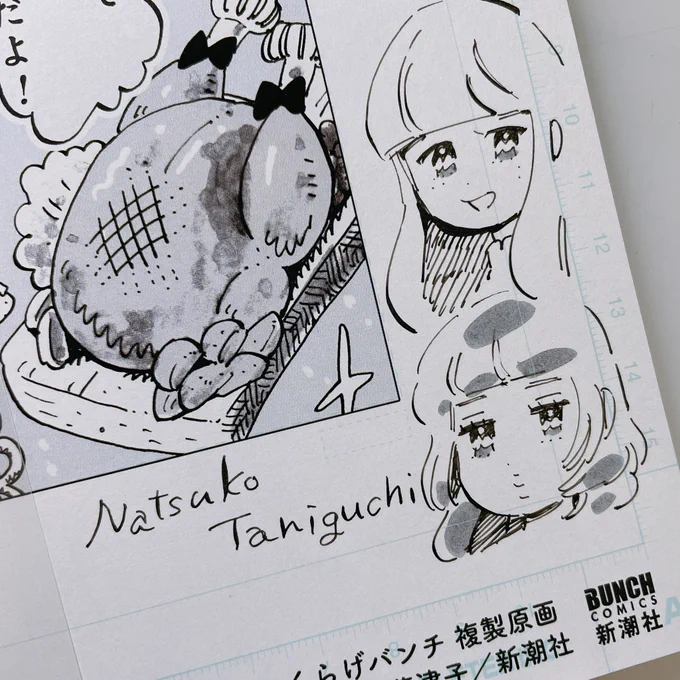 だよ！
10
11
12
13
14
15
Natsuko
Taniguchi
BUNCH
COMICS
新潮社
らげバンチ 複製原画
津子／新潮社